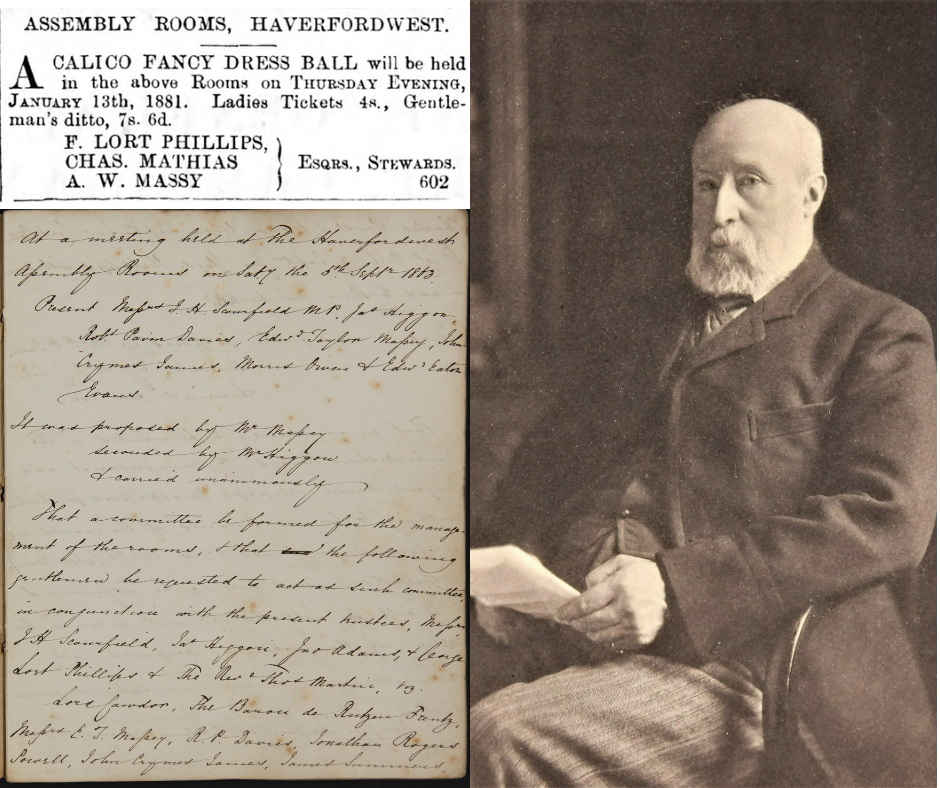 ASSEMBLY ROOMS, HAVERFORDWEST.
A CALICO FANCY DRESS BALL will be held
in the above Rooms on THURSDAY EVENING,
JANUARY 13th, 1881. Ladies Tickets 4s., Gentle-
man's ditto, 7s. 6d.
F. LORT PHILLIPS,
CHAS. MATHIAS
A. W. MASSY
ESQRS., STEWARDS.
602
At a meeting held at The Haverfordwest
Assembly Rooms on Saty the 5th Septr 1863
Present Messrs J. H. Scourfield M.P. Jas Higgon
Robt Pavin Davies, Edwd Taylor Massey, John
Crymes James, Morris Owen & Edwd Eaton
Evans
It was proposed by Mr Massey
seconded by Mr Higgon
& carried unanimously
That a committee be formed for the manage-
ment of the rooms, & that the following
gentlemen be requested to act as such committee,
in conjunction with the present trustees, Messrs
J H Scourfield, Jas Higgon, Jno Adams, & George
Lort Phillips & The Revd Thos Martin, viz.
Lord Cawdor, The Baron de Rutzen
Messrs E. T. Massey, R. P. Davies, Jonathan Rogers
Powell, John Crymes James, James Summers,